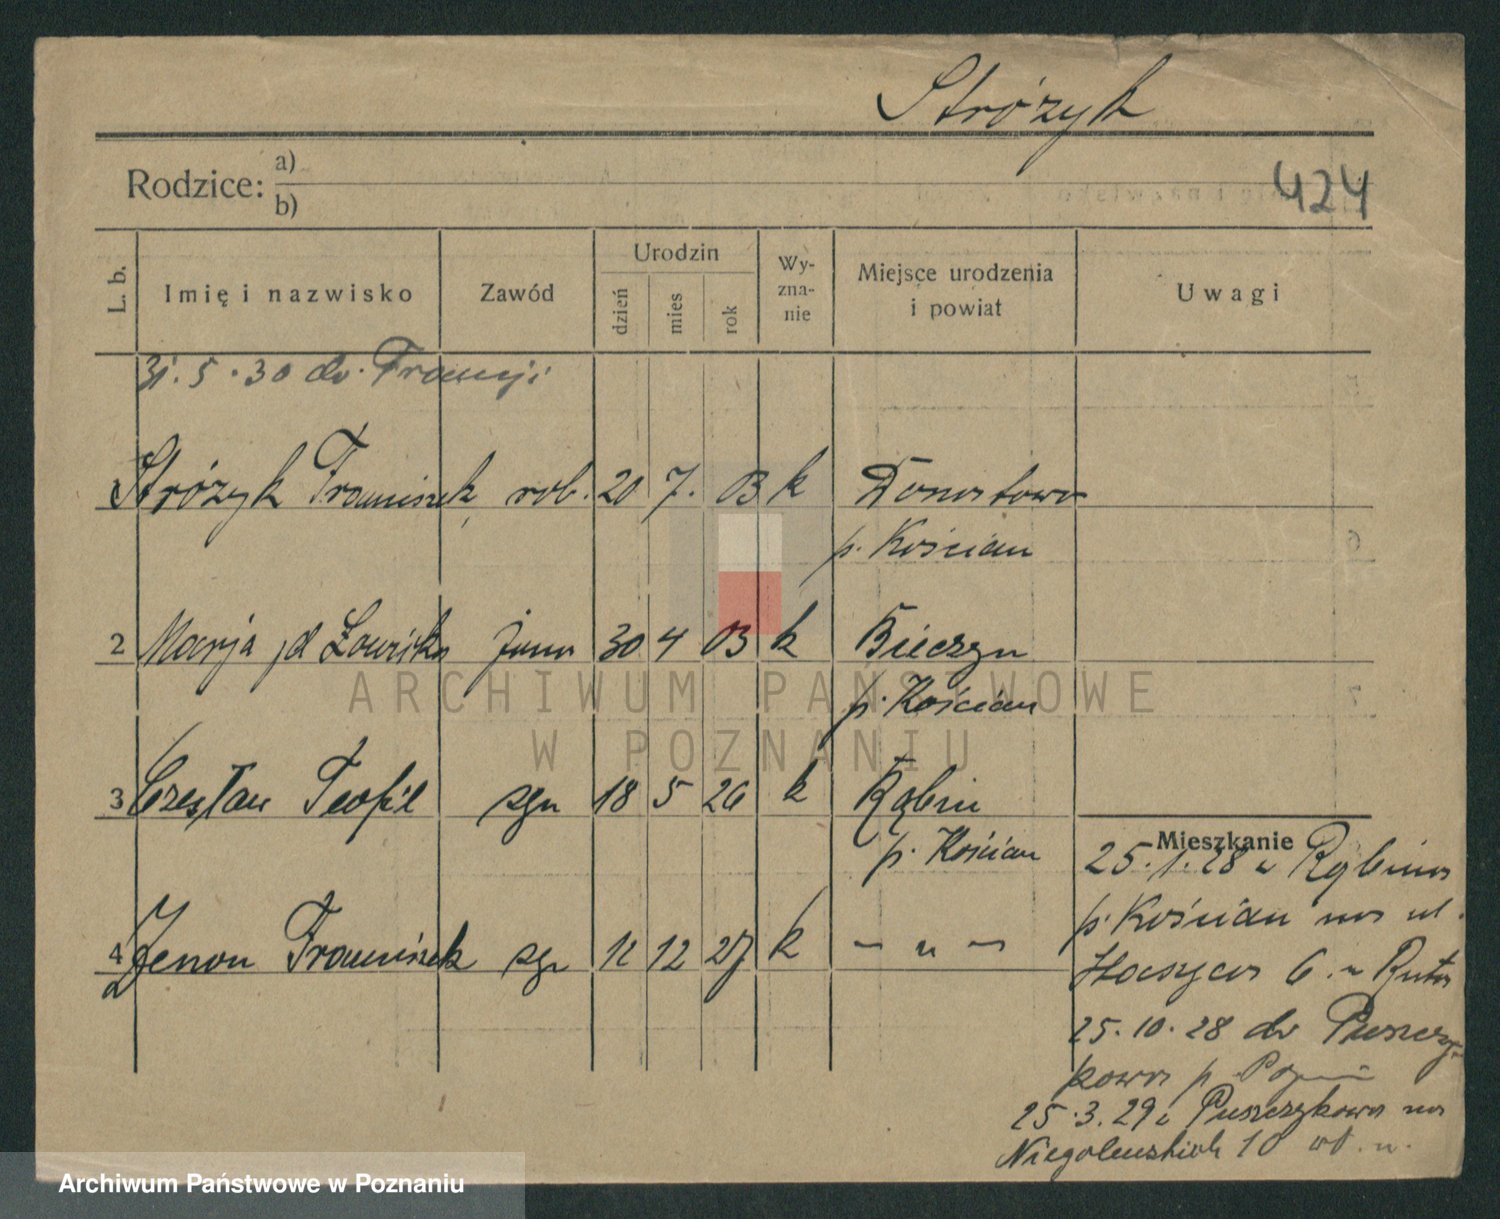 Stróżyk
Rodzice: a)
b)
424
L. b.
Imię i nazwisko
Zawód
Urodzin
dzień
mies
rok
Wy-
zna-
nie
Miejsce urodzenia
i powiat
Uwagi
31.5.30 do Francji
Stróżyk Franciszek rob. 20 7. 03 k Donatowo
p. Kościan
2 Marja jd żona 30 4 03 k Bieczyn
p. Kościan
3 Czesław Teofil syn 18 5 26 k Rąbiń
p. Kościan
4 Zenon Franciszek syn 11 12 27 k – " –
Mieszkanie
25.1.28 z Rąbinia
p. Kościan na ul.
6. u
25.10.28 do Puszczy-
kowa p. Poznań
25.3.29 z Puszczykowa na
Niegolewskich 10
ARCHIWUM PAŃSTWOWE
W POZNANIU
Archiwum Państwowe w Poznaniu